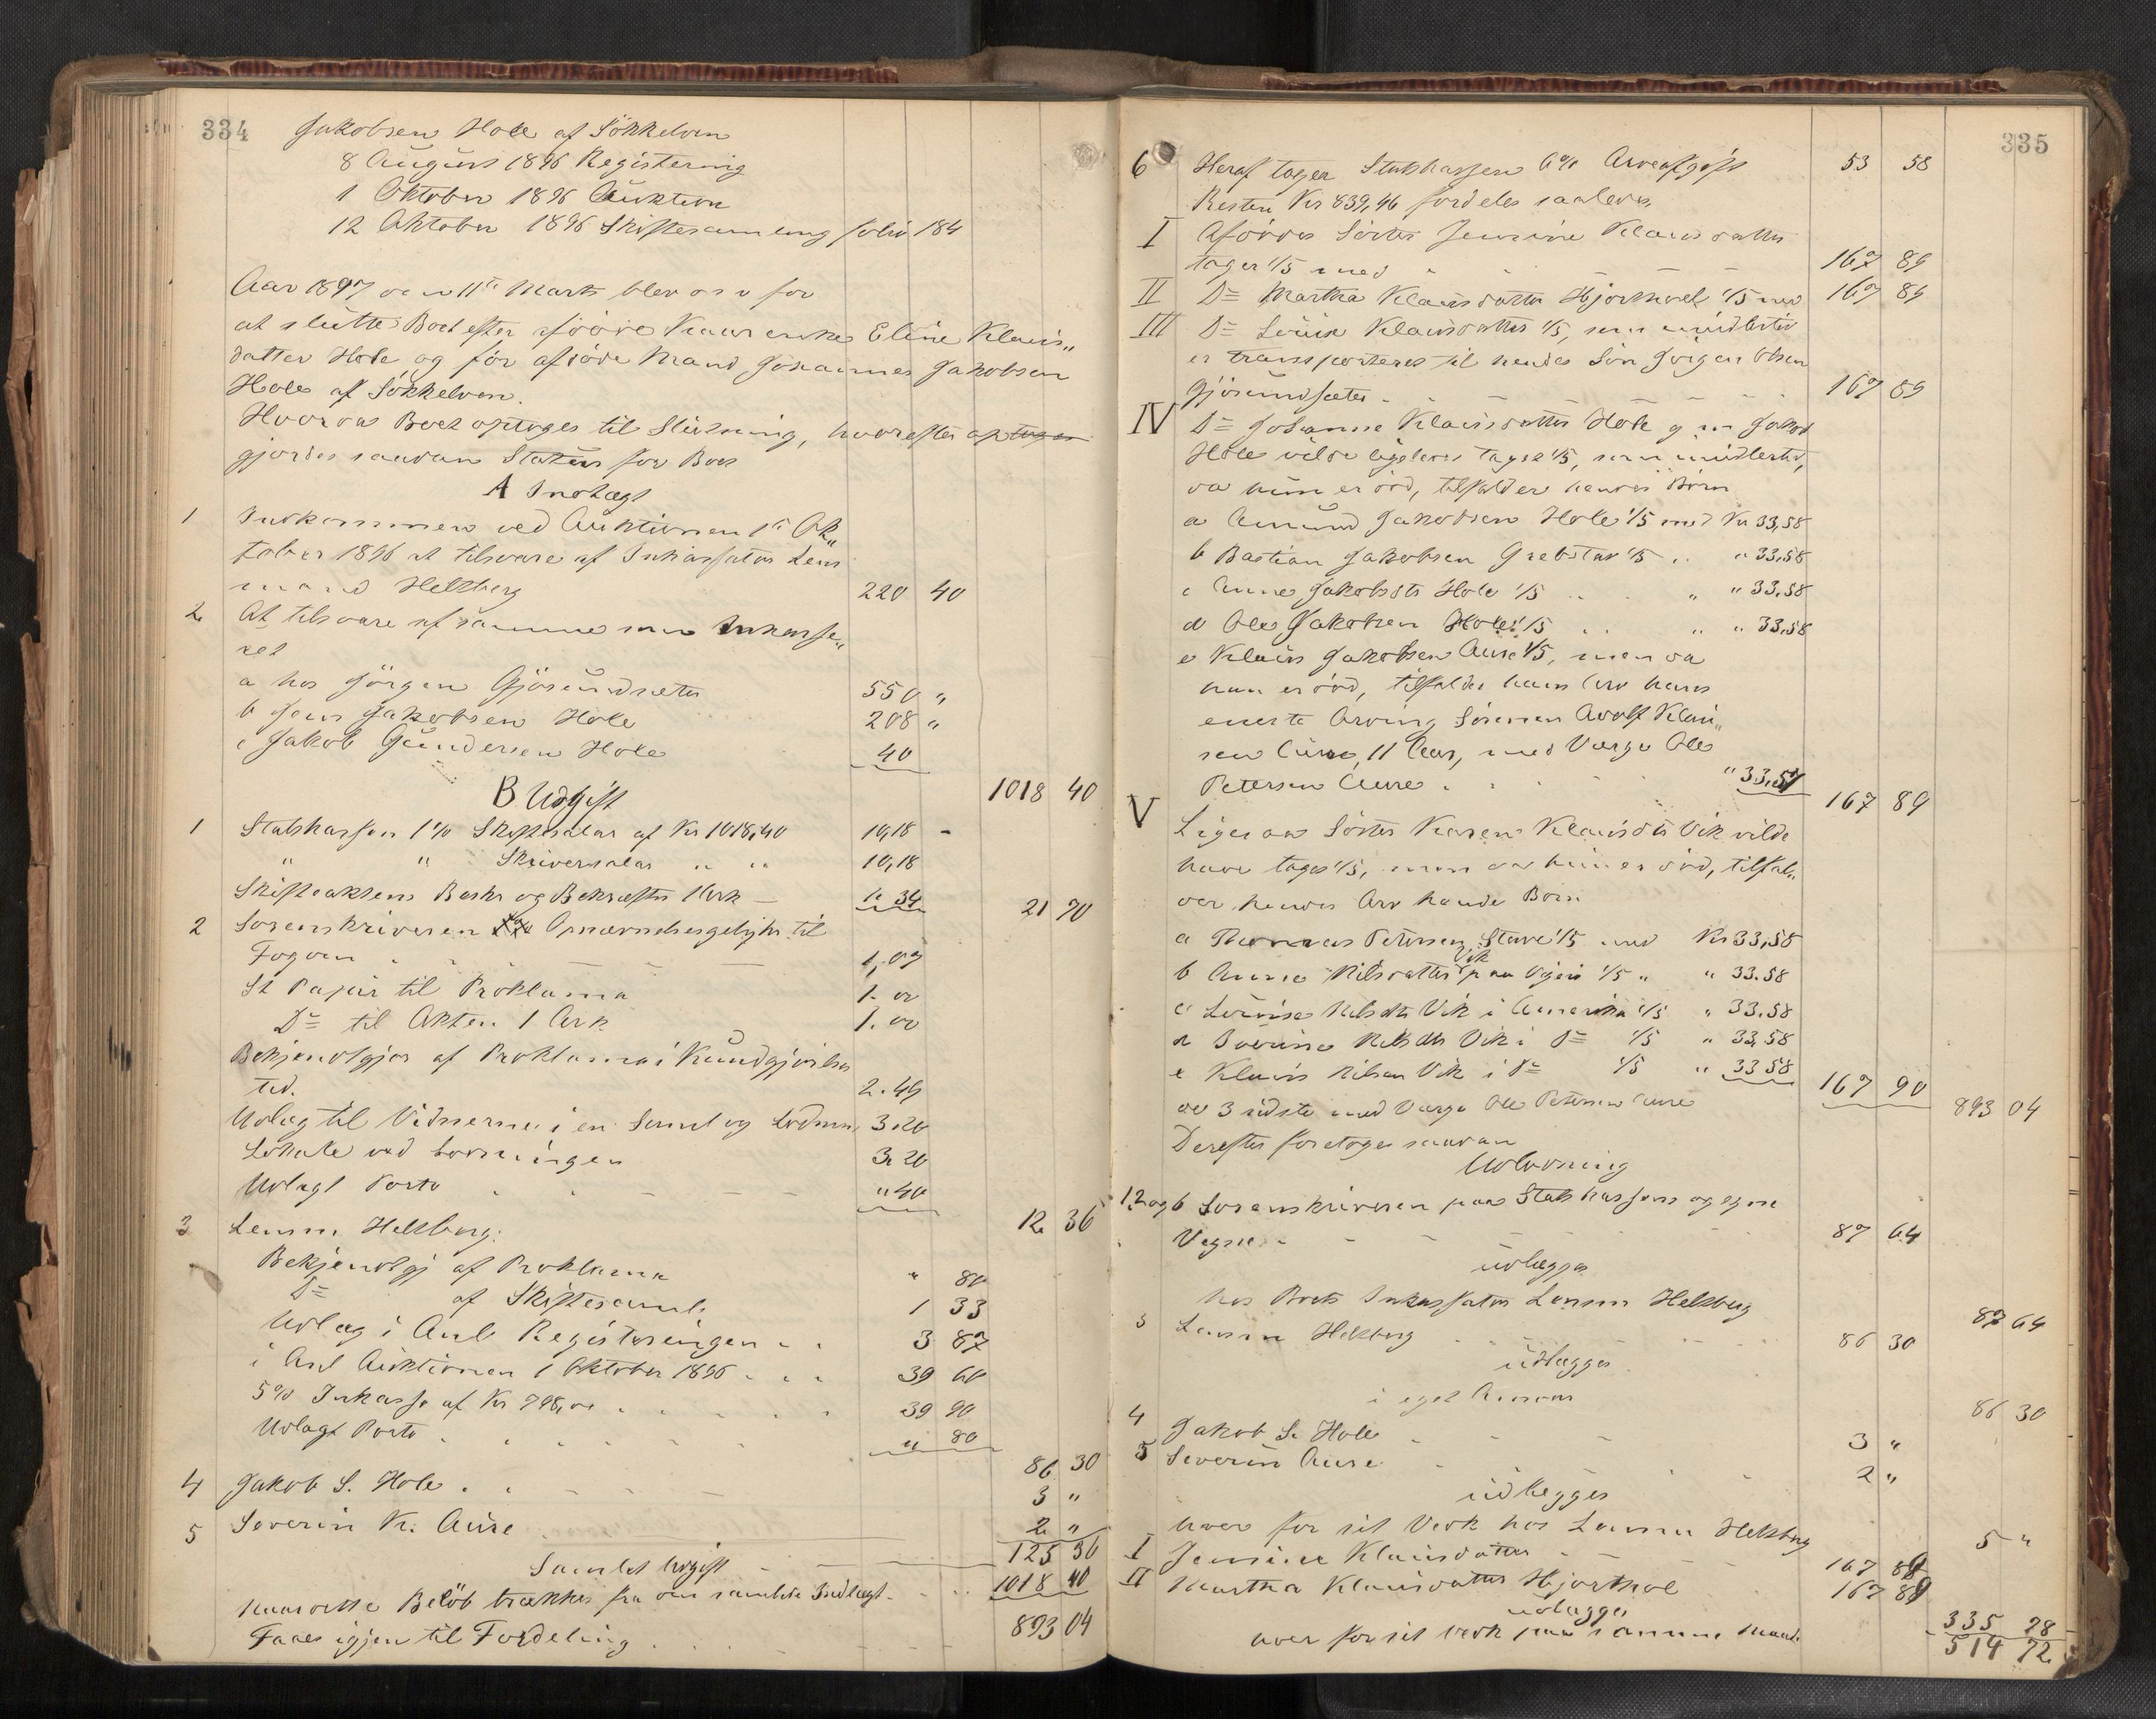 334
Jakobsen Hole af Søkkelven
8 August 1896 Registering
1 Oktober 1896 Auktion
12 Oktober 1896 Skiftesamling folio 184
Aar 1897 den 11te Marts blev Ret sat for
at slutte Boet efter afdøde Kaarenke Eline Klaus„
datter Hole og før afdøde Mand Johannes Jakobsen
Hole af Søkkelven.
Hvorda Boet optoges til Slutning, hvorefter optoges
gjordes saadan Status for Boet
A Indtægt
1 Indkommen ved Auktionen 1ste Ok„
tober 1896 at tilsvare af Inkassator Lens
mand Helsberg 220 40
2 At tilsvare af samme som Inkasse„
ret
a hos Jørgen Gjøsundsæter 550 „
b Jens Jakobsen Hole 208 „
c Jakob Gundersen Hole 40
1018 40
B Udgift
1 Statskassen 1% Skiftesalær af Kr 1018,40 10,18
„ „ Skriversalær „ „ 10,18
Skifteaktens Beskr og Bekræftn 1 Ark 1. 34
21 70
2 Sorenskriveren Opnævnelsesgebyhr til
Fogden 1,07
St Papir til Proklama 1. 00
Do til Akten 1 Ark 1. 00
Bekjendtgjør af Proklama i Kundgjørelses
tid. 2. 49
Udlæg til Vidnerne i en Saml og Lodnn 3.20
Lokale ved Lodningen 3. 20
Udlagt Porto „ 40
12 36
3 Lensm. Helsberg:
Bekjendtgj af Proklama „ 80
Do af Skiftesaml. 1 33
Udlæg i Anl Registeringen 3 87
i Anl Auktionen 1 Oktober 1896 39 60
5% Inkasso af Kr 798,00 39 90
Udlagt Porto „ 80
86 30
4 Jakob S. Hole 3 „
5 Severin K. Aure 2 „
Samlet Udgift 125 36
1018 40
naar dette Beløb trækkes fra den samlede Indtægt
Faaes igjen til Fordeling 893 04
335
6 Heraf tager Statskassen 6% Arveafgift 53 58
Resten Kr 839,46 fordeles saaledes
I Afdødes Søster Jensine Klausdatter
tager 1/5 med 167 89
II Do Martha Klausdatter Hjorthol 1/5 med 167 89
III Do Lovise Klausdatter 1/5, som imidlertid
er transporteret til hendes Søn Jørgen Olsen
Gjøsundsæter 167 89
IV Do Johanne Klausdatter Hole g m Jakob
Hole vilde ligeledes taget 1/5, som imidlertid,
da hun er død, tilfalder hendes Børn
a Amund Jakobsen Hole 1/5 med Kr 33,58
b Bastian Jakobsen Grebstad 1/5 „ 33,58
c Anne Jakobsdtr Hole 1/5 „ „ 33,58
d Ole Jakobsen Hole 1/5 „ „ 33,58
e Klaus Jakobsen Aure 1/5, men da
han er død, tilfalder hans Arv hans
eneste Arving Sønnen Adolf Klau„
sen Aure, 11 Aar, med Værge Ole
Petersen Aure „ 33,57
167 89
V Ligesaa Søster Karen Klausdtr Vik vilde
have taget 1/5, men da hun er død, tilfal„
der hendes Arv hende Børn
a Thomas Petersen Stave 1/5 med Kr 33,58
b Anne Nilsdatter Vik paa Vejen 1/5 „ „ 33.58
c Lovise Nilsdtr Vik i Amerika 1/5 „ 33,58
d Severine Nilsdtr Vik i Do 1/5 „ 33,58
e Klaus Nilsen Vik i Do 1/5 „ 33 58
167 90
de 3 sidste med Værge Ole Petersen Aure 893 04
Derefter foretoges saadan
Udlodning
1,2 og 6 Sorenskriveren paa Statskassens og egne
Vegne 87 64
udlægges
hos Boets Inkassator Lensm Helsberg
87 64
3 Lensm Helsberg 86 30
udlægges
i eget Ansvar
86 30
4 Jakob S. Hole 3 „
5 Severin Aure 2 „
udlægges
hver for sit Vedk hos Lensm Helsberg
5 „
I Jensine Klausdatter 167 89
II Martha Klausdatter Hjorthol 167 89
udlægges
hver for sit Vedk paa samme Maade
335 78
514 72